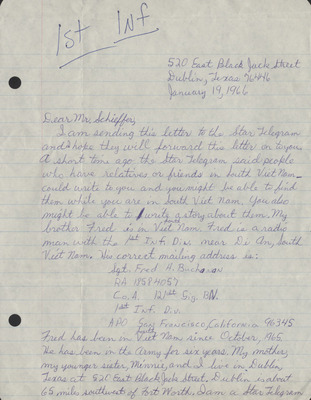 1st Inf
520 East Black Jack Street
Dublin, Texas 76446
January 19, 1966
Dear Mr. Schieffer,
I am sending this letter to the Star Telegram
and hope they will forward this letter on to you.
A short time ago the Star Telegram said people
who have relatives or friends in South Viet Nam
could write to you and you might be able to find
them while you are in South Viet Nam. You also
might be able to write a story about them. My
brother Fred is in South Viet Nam. Fred is a radio
man with the 1st Inf. Div. near Di An, South
Viet Nam. His correct mailing address is:
Sgt. Fred A. Buchanan
RA 18584057
Co. A. 121st Sig. BN.
1st Inf. Div.
APO San Francisco, California 96345
Fred has been in South Viet Nam since October, 1965.
He has been in the Army for six years. My mother,
my younger sister, Minnie, and I live in Dublin,
Texas at 520 East Black Jack Street. Dublin is about
65 miles southwest of Fort Worth. I am a Star Telegram